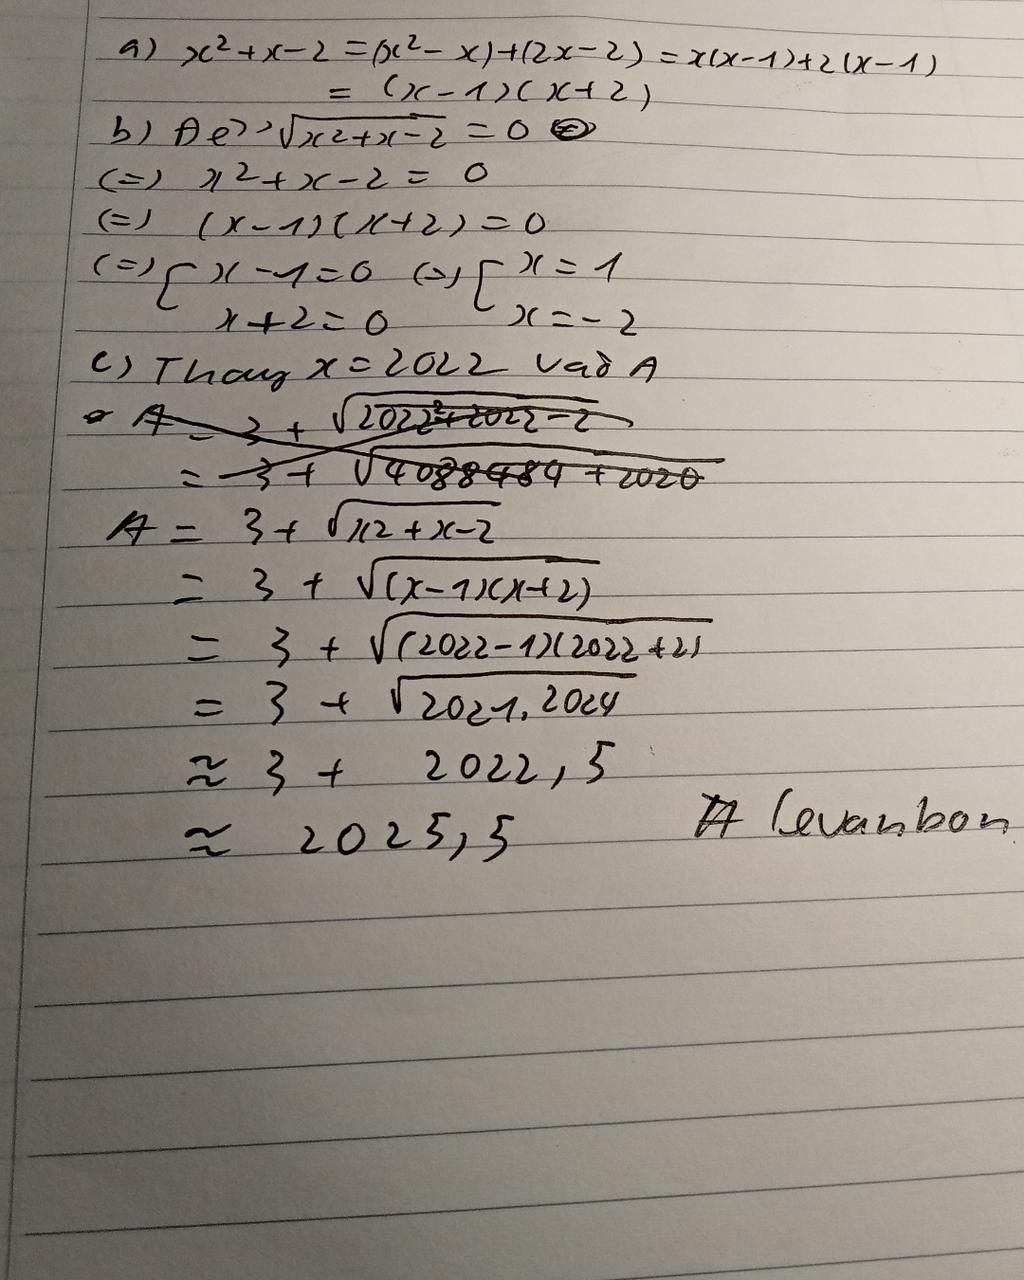 a) x² + x - 2 = (x² - x) + (2x - 2) = x(x - 1) + 2(x - 1)
= (x - 1)(x + 2)
b) Để √x2 + x - 2 = 0
(=) x² + x - 2 = 0
(=) (x - 1)(x + 2) = 0
(=) [ x - 1 = 0 (=) [ x = 1
x + 2 = 0 x = - 2
c) Thay x = 2022 vào A
A = 3 + √2022² + 2022 - 2
= 3 + √4088484 + 2020
A = 3 + √x2 + x - 2
= 3 + √(x - 1)(x + 2)
= 3 + √(2022 - 1)(2022 + 2)
= 3 + √2021.2024
≈ 3 + 2022,5
≈ 2025,5
levanbon